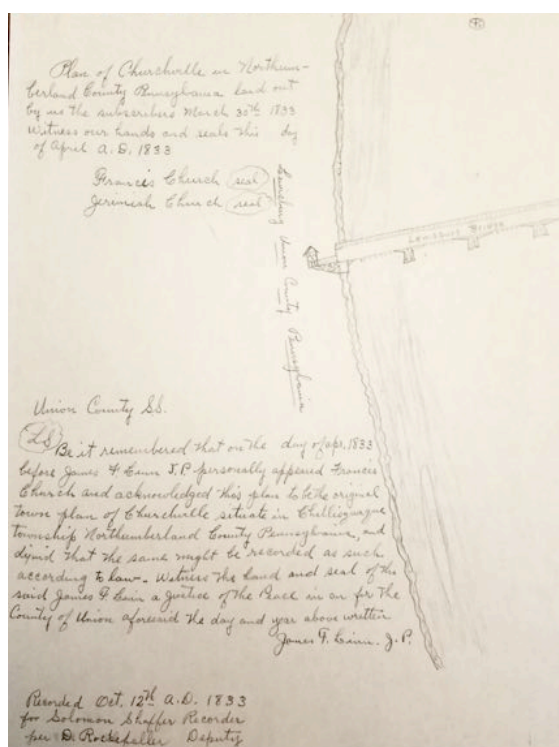 Plan of Churchville in Northum-
berland County Pennsylvania laid out
by us the subscribers March 30th 1833
Witness our hands and seals this day
of April A.D. 1833
Francis Church seal
Jerimiah Church seal
Lewisburg Union County Pennsylvania
Lewisburg Bridge
Union County SS.
LS Be it remembered that on the day of Apr. 1833
before James F Linn J.P. personally appeared Francis
Church and acknowledged this plan to be the original
town plan of Churchville situate in Chillisquaque
township Northumberland County Pennsylvania, and
that the same might be recorded as such
according to law - Witness the hand and seal of the
said James F Linn a Justice of the Peace in an for the
County of Union aforesaid the day and year above written
James F. Linn. J.P.
Recorded Oct. 12th A.D. 1833
for Solomon Shaffer Recorder
per D. Rockefeller Deputy